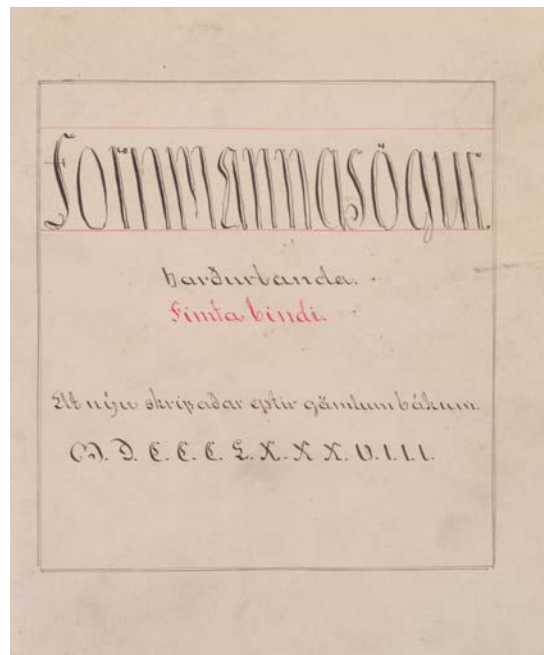 Fornmannasögur.
Harðurbanda.
Fimta bindi.
At nýu skripaðar eptir gömlum bókum
M. D. C. C. C. L. X. X. X. V. I. I. I.